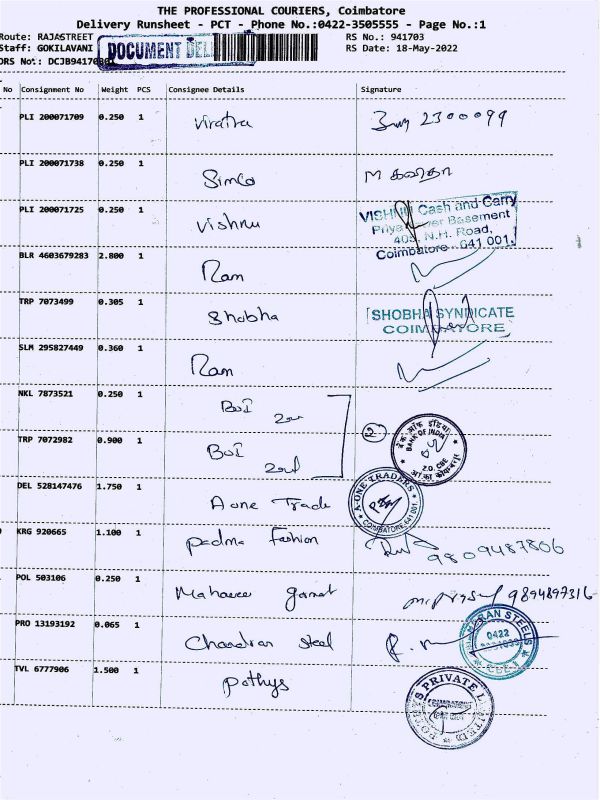 THE PROFESSIONAL COURIERS, Coimbatore
Delivery Runsheet - PCT - Phone No.:0422-3505555 - Page No.:1
Route: RAJASTREET RS No.: 941703
Staff: GOKILAVANI RS Date: 18-May-2022
DOCUMENT DEL
DRS No.: DCJB9417030
No Consignment No Weight PCS Consignee Details Signature
PLI 200071709 0.250 1 2300099
PLI 200071738 0.250 1 Simco M
PLI 200071725 0.250 1 Vishnu
VISHNU Cash and Carry
Basement
405, N.H. Road,
Coimbatore - 641 001.
BLR 4603679283 2.800 1 Ram
TRP 7073499 0.305 1 Shobha
SHOBHA SYNDICATE
COIMBATORE
SLM 295827449 0.360 1 Ram
NKL 7873521 0.250 1 BOI
2
TRP 7072982 0.900 1 BOI
बैंक ऑफ इंडिया
BANK OF INDIA
Z.O. CBE
DEL 528147476 1.750 1 A one Trade
A-ONE TRADERS
COIMBATORE 641 001
KRG 920665 1.100 1 Padma Fashion 9809487806
POL 503106 0.250 1 9894897316
PRO 13193192 0.065 1 Chandran steel
RAN STEELS
0422
CBE-1
TVL 6777906 1.500 1 Pothys
S PRIVATE LIMITED